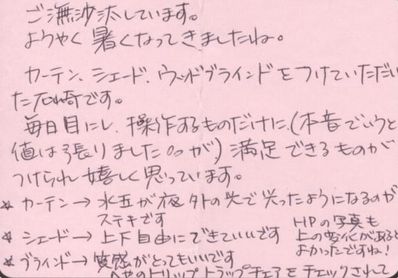 ご無沙汰しています。
ようやく暑くなってきましたね。
カーテン、シェード、ウッドブラインドをつけていただい
た石崎です。
毎日目にし、操作するものだけに、(本音でいうと
値は張りました。。が)満足できるものが
つけられ嬉しく思っています。
* カーテン→水玉が夜外の光で光ったようになるのが
ステキです
* シェード→上下自由にできていいです
HPの写真も
上の変化があると
よかったですね!
* ブラインド→質感がとてもいいです
トリップトラップチェアもチェックされて